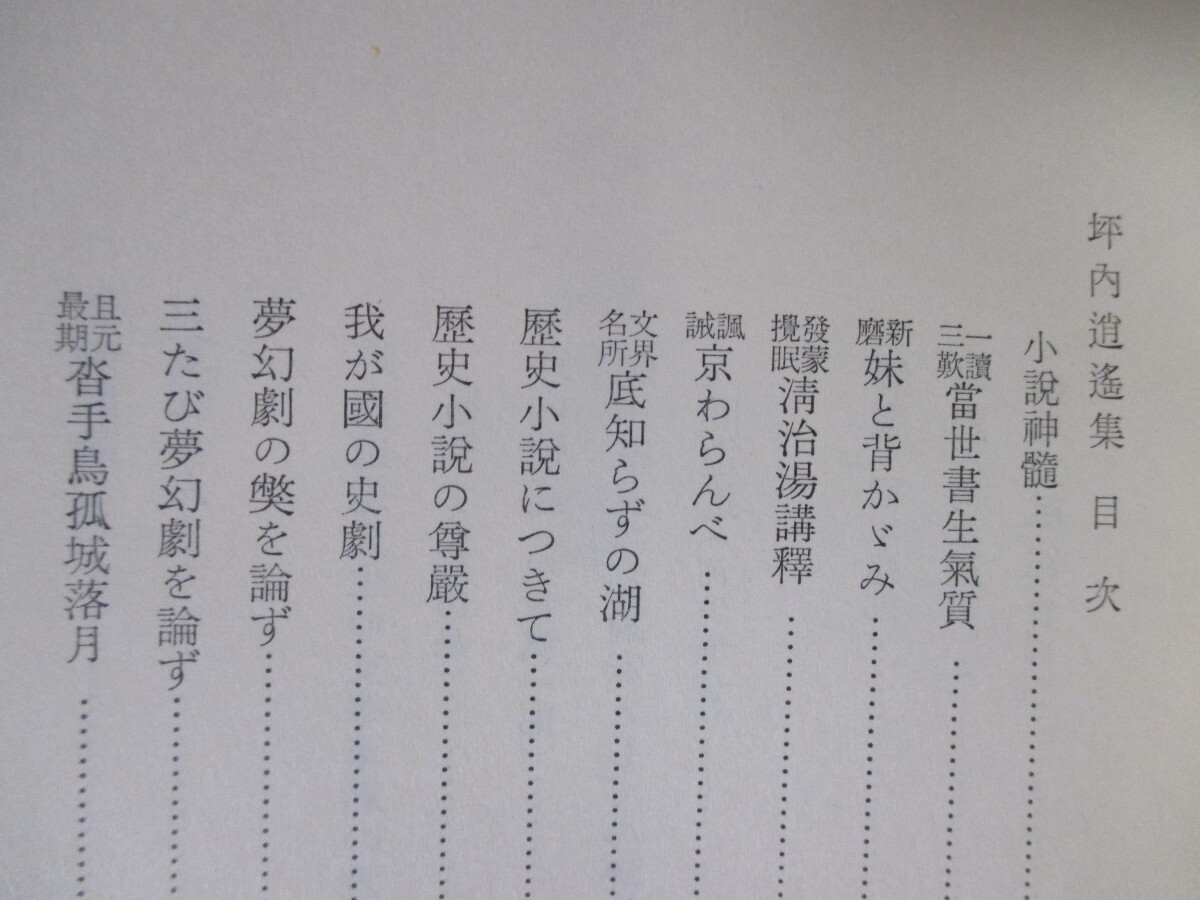 坪內逍遙集 目次
小說神髓…………
一讀三歎當世書生氣質…………
新磨妹と背かゞみ…………
發蒙攪眠淸治湯講釋…………
諷誡京わらんべ…………
文界名所底知らずの湖…………
歷史小說につきて…………
歷史小說の尊嚴…………
我が國の史劇…………
夢幻劇の弊を論ず…………
三たび夢幻劇を論ず…………
且元最期沓手鳥孤城落月…………